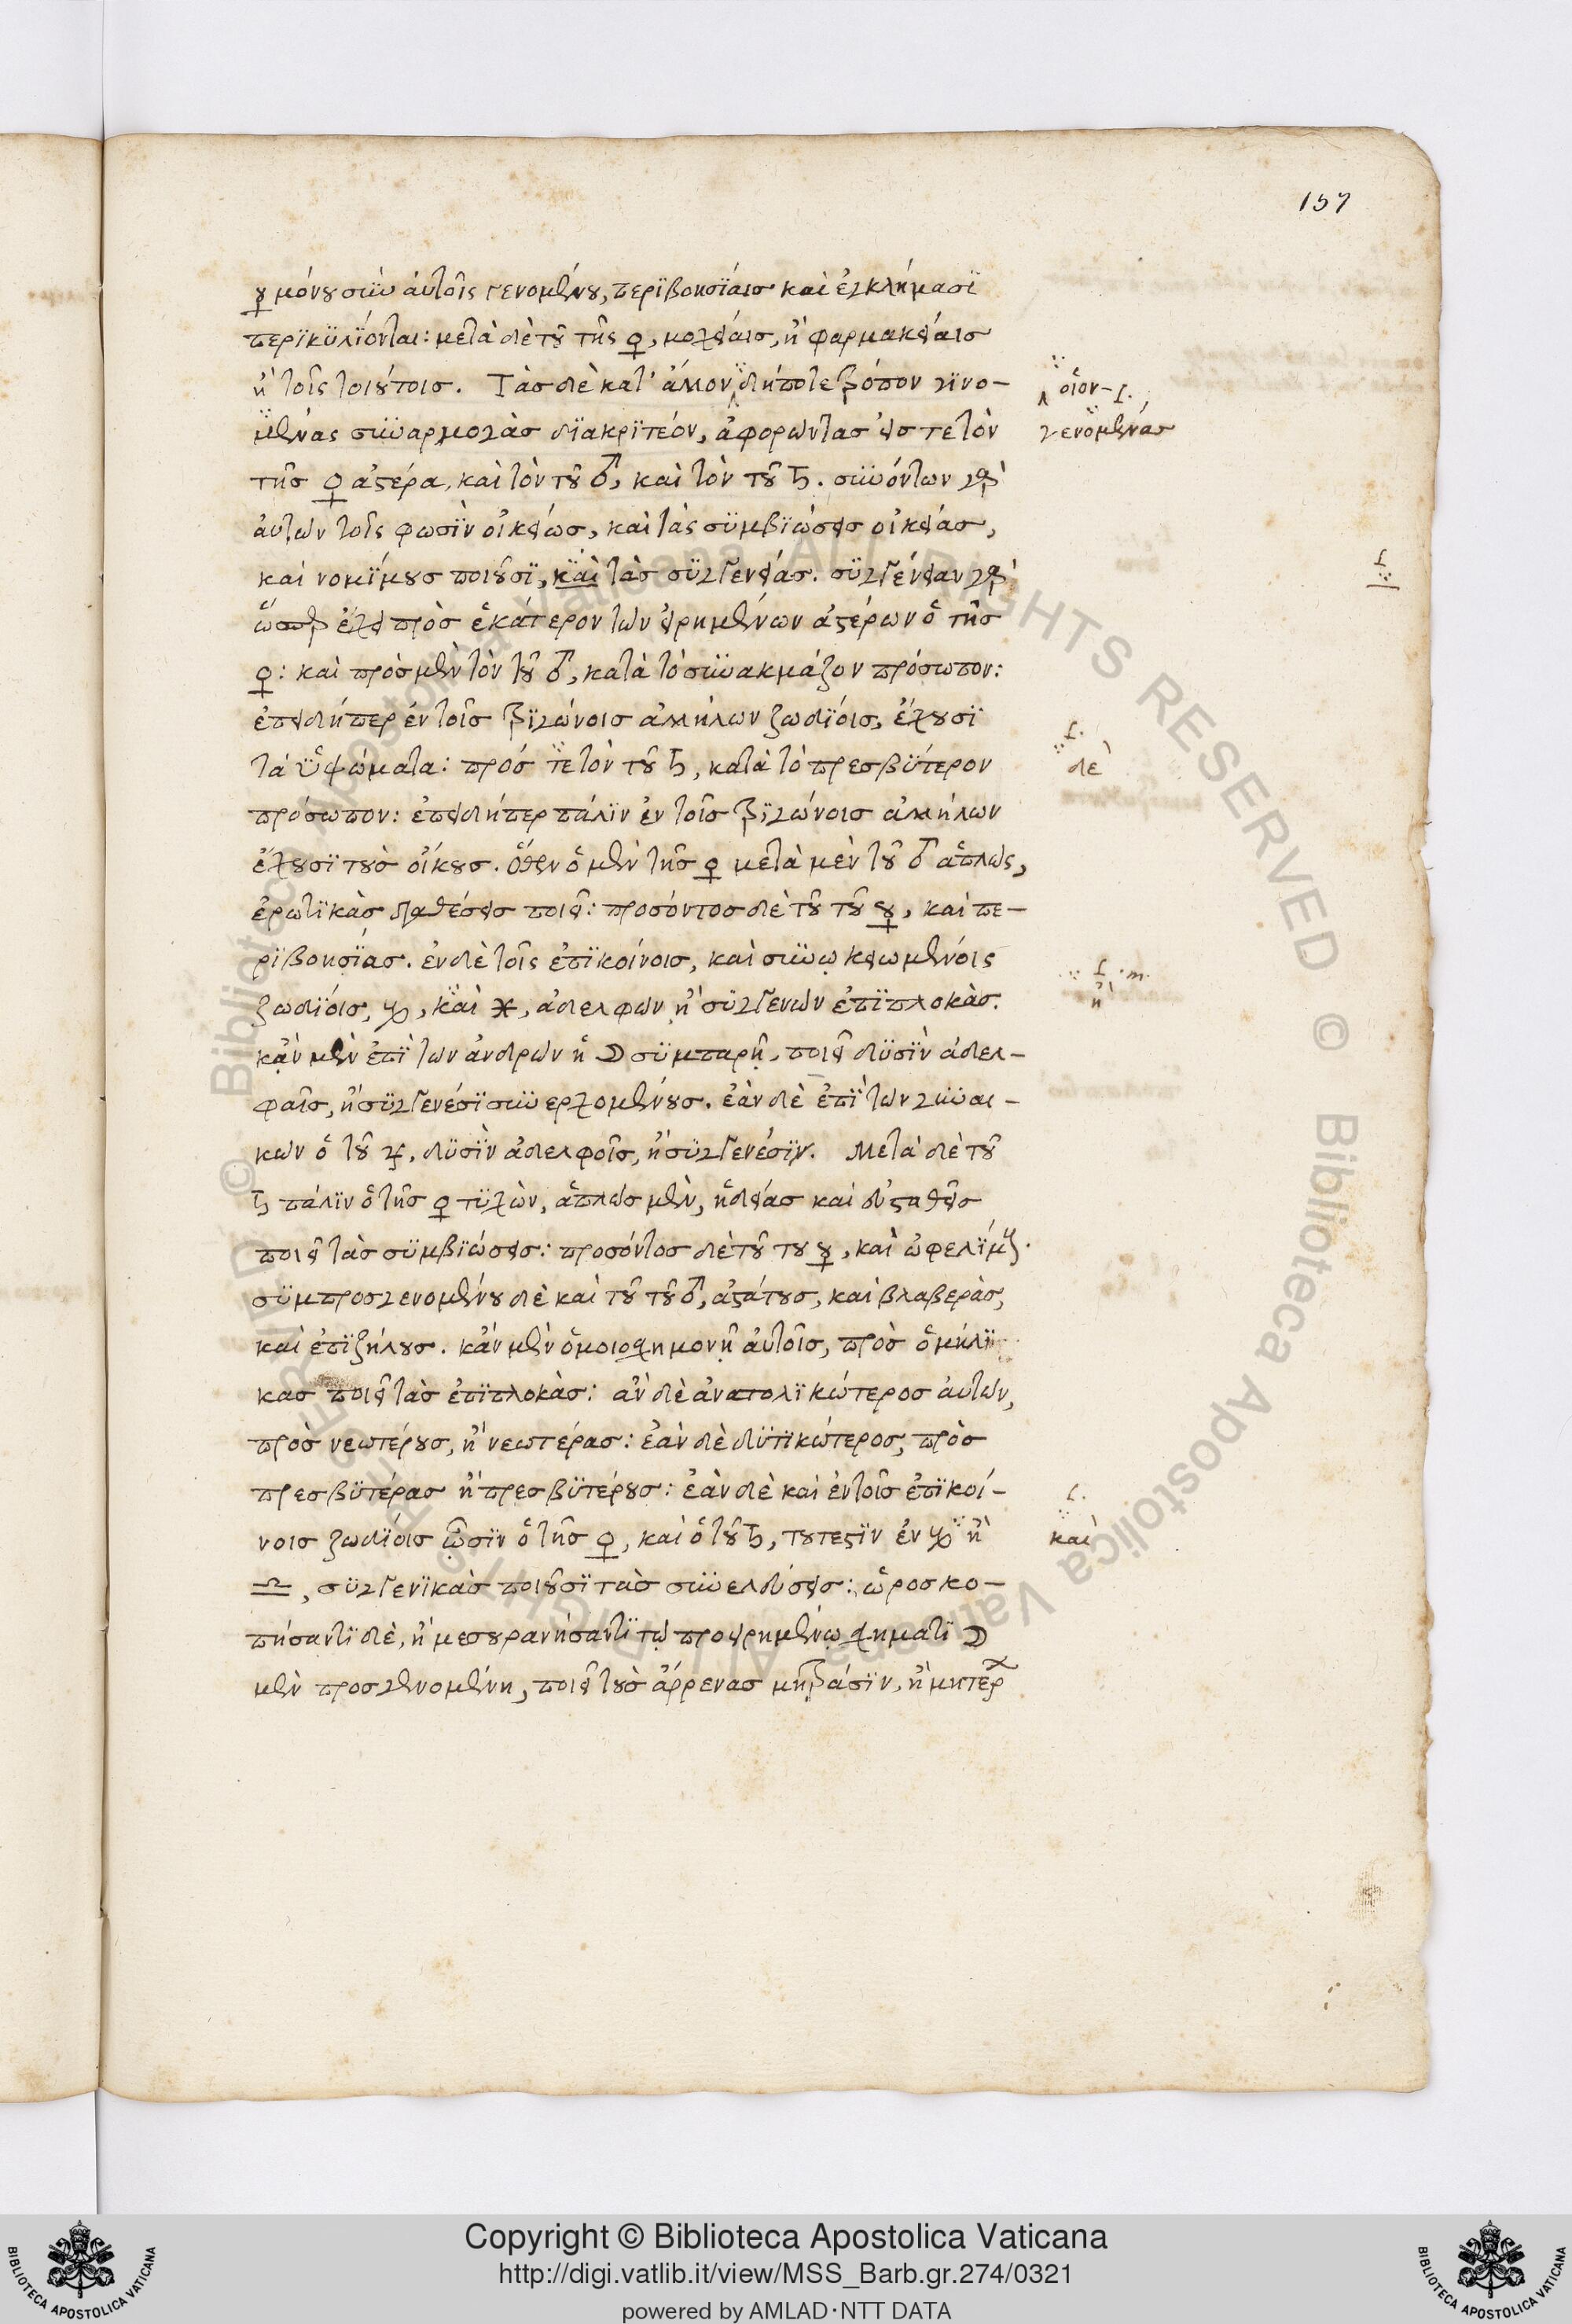 157
☿ μόνου σὺν αὐτοῖς γενομένου, περιβοησίαις καὶ ἐγκλήμασι
περικυλίονται: μετὰ δὲ τοῦ τῆς ♀, μοιχείαις, ἢ φαρμακείαις
ἢ τοῖς τοιούτοις. Τὰς δὲ κατ' ἄλλον δήποτε τρόπον γινο-
μένας συναρμογὰς διακριτέον, ἀφορῶντας εἴς τε τὸν
τῆς ♀ ἀστέρα, καὶ τὸν τοῦ ♂, καὶ τὸν τοῦ ♄. συνόντων γὰρ
αὐτῶν τοῖς φωσὶν οἰκείως, καὶ τὰς συμβιώσεις οἰκείας,
καὶ νομίμους ποιοῦσι, καὶ τὰς συγγενείας. συγγένειαν γὰρ
ὥσπερ ἔχει πρὸς ἑκάτερον τῶν εἰρημένων ἀστέρων ὁ τῆς
♀: καὶ πρὸς μὲν τὸν τοῦ ♂, κατὰ τὸ συνακμάζον πρόσωπον:
ἐπειδήπερ ἐν τοῖς τριγώνοις ἀλλήλων ζωδίοις, ἔχουσι
τὰ ὑψώματα: πρός τε τὸν τοῦ ♄, κατὰ τὸ πρεσβύτερον
πρόσωπον: ἐπειδήπερ πάλιν ἐν τοῖς τριγώνοις ἀλλήλων
ἔχουσι τοὺς οἴκους. ὅθεν ὁ μὲν τῆς ♀ μετὰ μὲν τοῦ ♂ ἁπλῶς,
ἐρωτικὰς διαθέσεις ποιεῖ: προσόντος δὲ τοῦ τοῦ ☿, καὶ πε-
ριβοησίας. ἐν δὲ τοῖς ἐπικοίνοις, καὶ συνῳκειωμένοις
ζωδίοις, ♑, καὶ ♓, ἀδελφῶν ἢ συγγενῶν ἐπιπλοκάς.
κἂν μὲν ἐπὶ τῶν ἀνδρῶν ἡ ☽ συμπαρῇ, ποιεῖ δυσὶν ἀδελ-
φαῖς, ἢ συγγενέσι συνερχομένους. ἐὰν δὲ ἐπὶ τῶν γυναι-
κῶν ὁ τοῦ ♃, δυσὶν ἀδελφοῖς, ἢ συγγενέσιν. Μετὰ δὲ τοῦ
♄ πάλιν ὁ τῆς ♀ τυχὼν, ἁπλῶς μὲν, ἡδείας καὶ εὐσταθεῖς
ποιεῖ τὰς συμβιώσεις: προσόντος δὲ τοῦ τοῦ ☿, καὶ ὠφελίμους.
συμπροσγενομένου δὲ καὶ τοῦ τοῦ ♂, ἀστάτους, καὶ βλαβερὰς,
καὶ ἐπιζήλους. κἂν μὲν ὁμοιοσχημονῇ αὐτοῖς, πρὸς ὁμήλι
κας ποιεῖ τὰς ἐπιπλοκὰς: ἂν δὲ ἀνατολικώτερος αὐτῶν,
πρὸς νεωτέρους, ἢ νεωτέρας: ἐὰν δὲ δυτικώτερος, πρὸς
πρεσβυτέρας ἢ πρεσβυτέρους: ἐὰν δὲ καὶ ἐν τοῖς ἐπικοί-
νοις ζωδίοις ὦσιν ὁ τῆς ♀, καὶ ὁ τοῦ ♄, τουτέστιν ἐν ♑ ἢ
♎, συγγενικὰς ποιοῦσι τὰς συνελεύσεις: ὡροσκο-
πήσαντι δὲ, ἢ μεσουρανήσαντι τῷ προειρημένῳ σχήματι ☽
μὲν προσγενομένη, ποιεῖ τοὺς ἄρρενας μητράσιν, ἢ μητέρ
οἷον-f.
γενομένας
f.
f.
δὲ
f. m.
ἢ
f.
καὶ
Copyright © Biblioteca Apostolica Vaticana
http://digi.vatlib.it/view/MSS_Barb.gr.274/0321
powered by AMLAD·NTT DATA